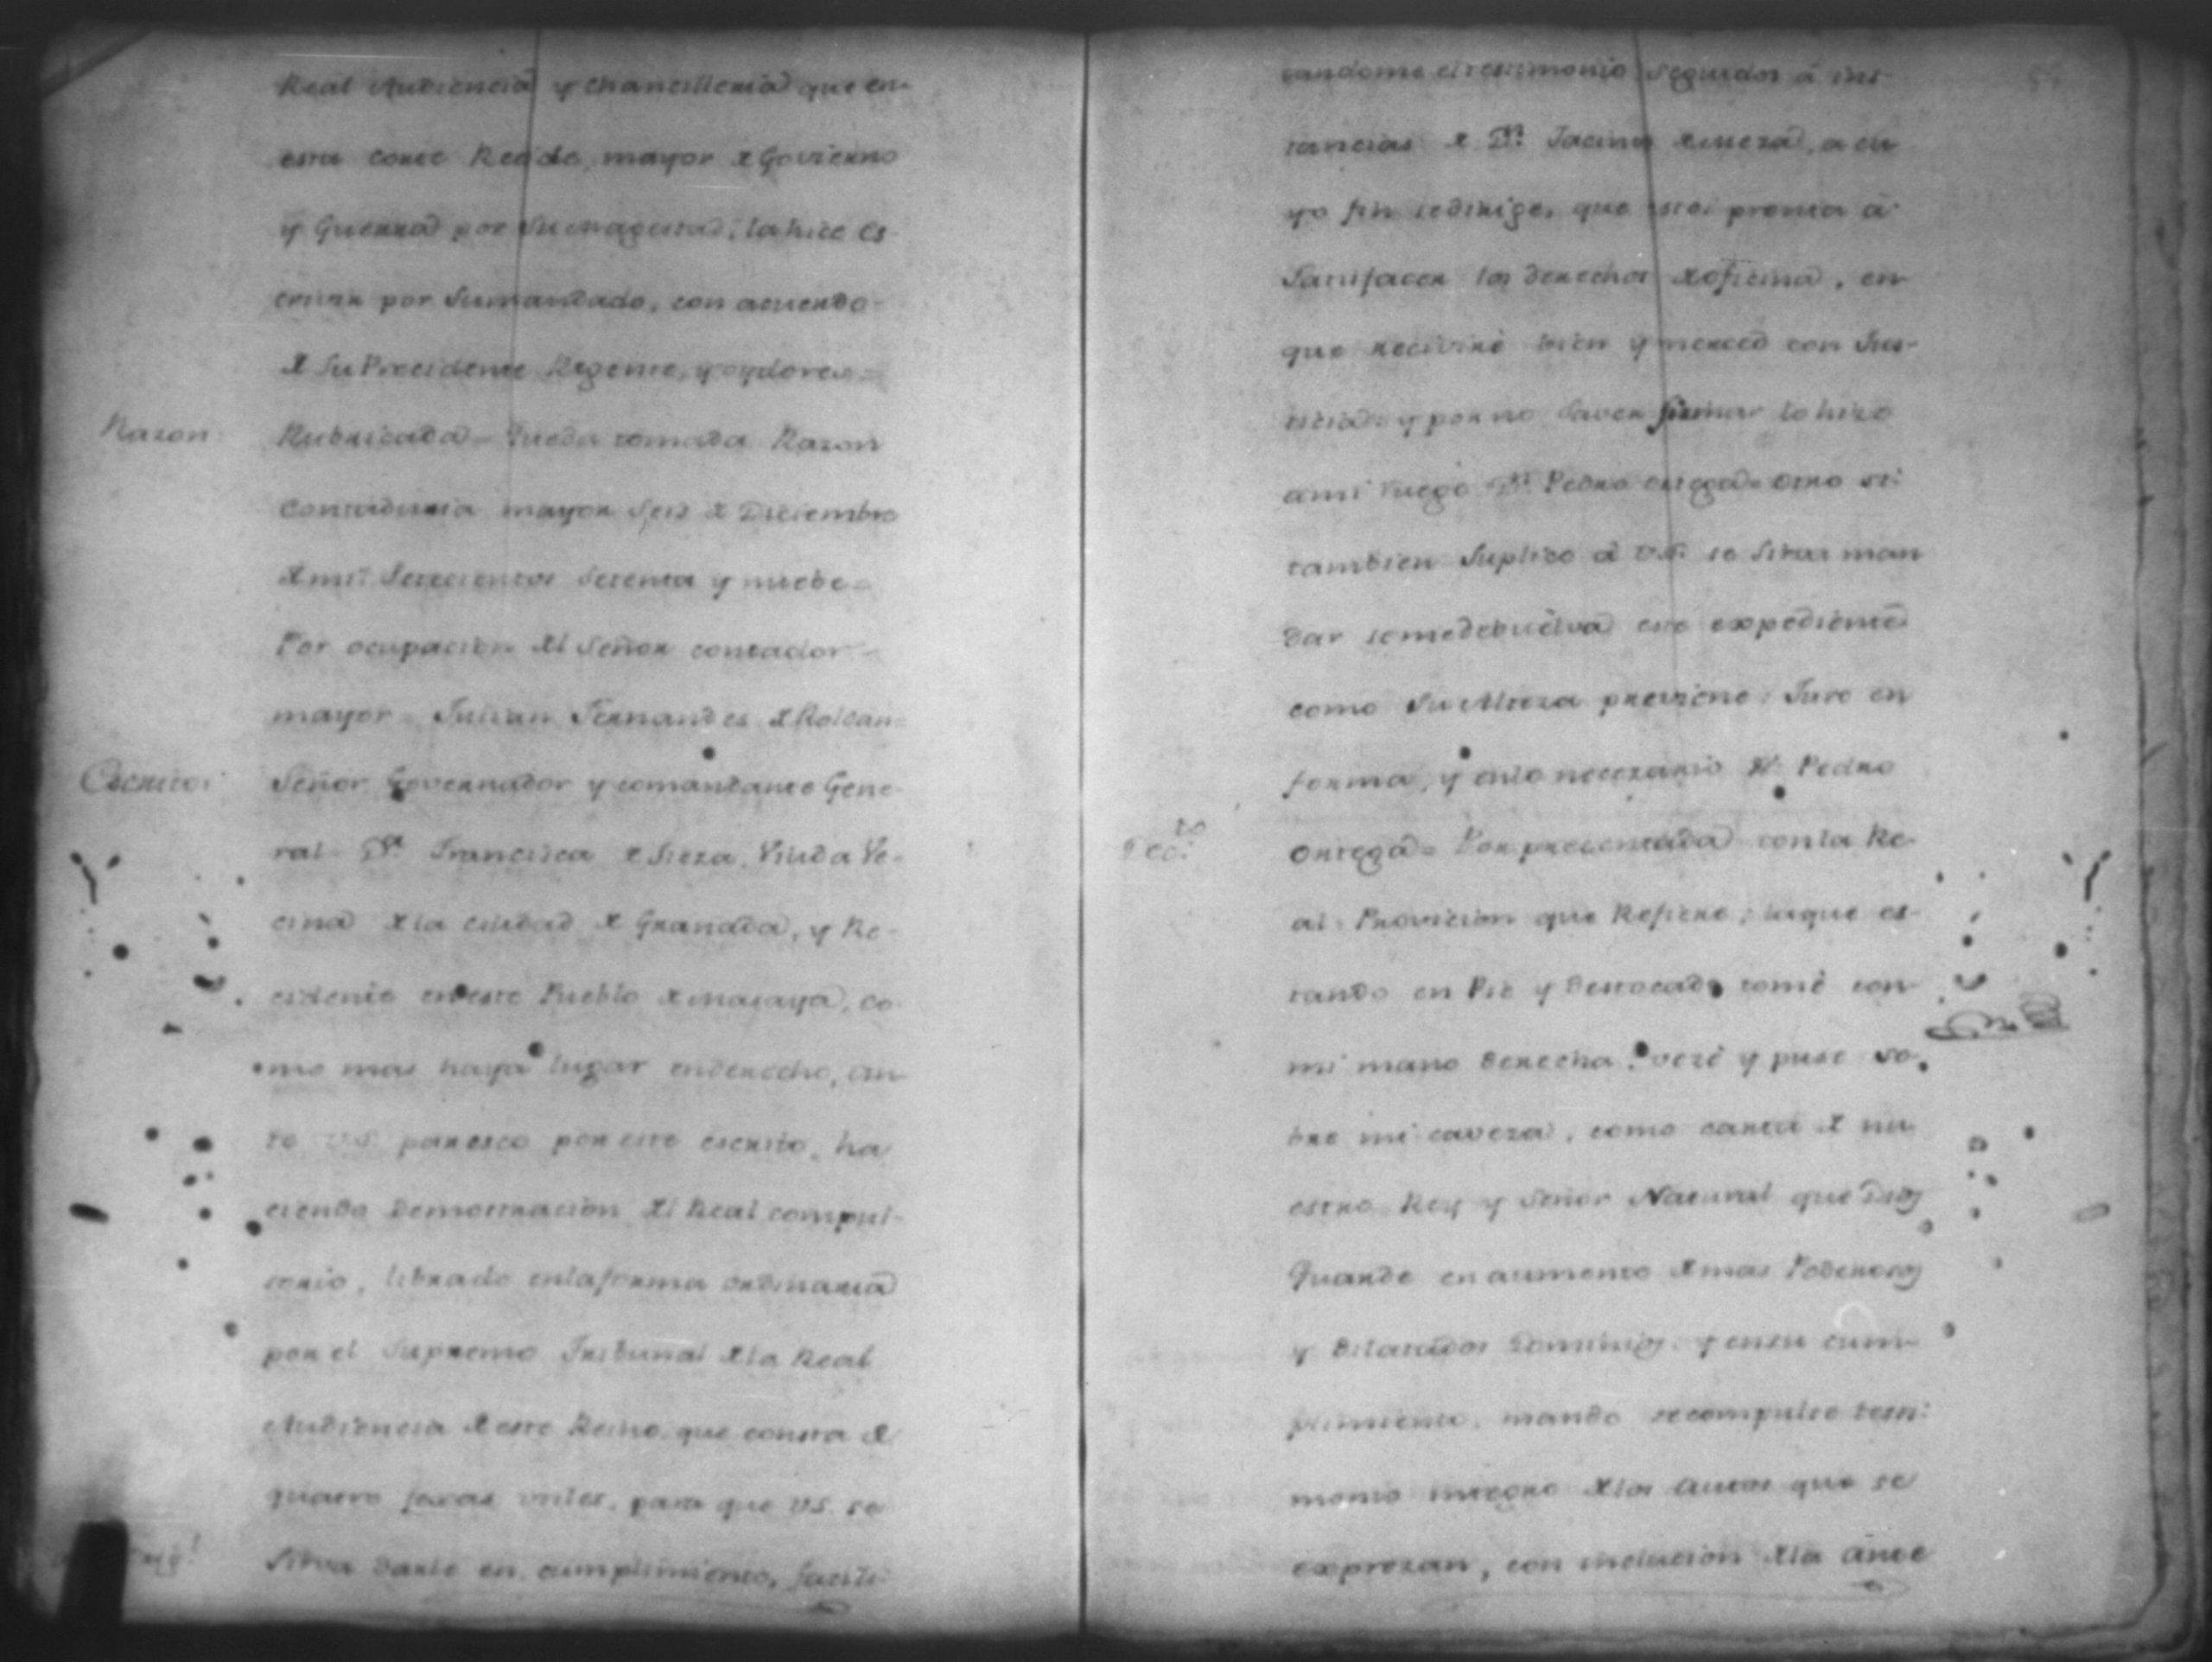 Real Audiencia y Chancilleria que en
esta corte Recide, mayor de Govierno
y Guerra por Su Magestad, la hice es
crivir por Sumandado, con acuerdo
de Su Precidente Regente, y oydores =
Razon: Rubricada = Queda tomada Razon
Contaduria mayor Seis de Diciembre
de mil Setecientos Setenta y nuebe =
Por ocupacion del Señor contador
mayor = Julian Fernandes de Roldan =
Escrito: Señor Governador y comandante Gene
ral = Dª Francisca de Sieza, Viuda Ve-
cina de la ciudad de Granada, y Re-
cidente en este Pueblo de Masaya, co
mo mas haya lugar en derecho, an
te V.S. paresco por este escrito, ha
ciendo Demostracion del Real compul-
sorio, librado en la forma ordinaria
por el Supremo Tribunal de la Real
Audiencia de este Reino, que consta de
quatro foxas utiles, para que V.S. se
Sirva darle en cumplimiento, facili-
tandome el testimonio Seguidos á ins-
tancias de Dn Jacinto, a cu
yo fin se dirige, que estoi pronta á
Satisfacer los derechos de oficina, en
que recivire bien y merced con Jus-
ticia: y por no Saver firmar lo hizo
a mi ruego Dn Pedro Ortega = Otro si:
tambien Suplico á V.S. se Sirva man
dar se me debuelva este expediente
como Su Alteza previene: Juro en
forma, y en lo necezario Pedro
Dec.to Ortega = Por precentada con la Re-
al Provicion que Refiere; la que es-
tando en Pie y Destocado tomé con
mi mano derecha, vezé y puse so-
bre mi caveza, como carta de nu
estro Rey y Señor Natural que Dios
Guarde en aumento de mas Poderosos
y Dilatados Dominios, y en su cum-
plimiento, mando se compulse testi-
monio integro de los Autos que se
exprezan, con inclucion de la ante